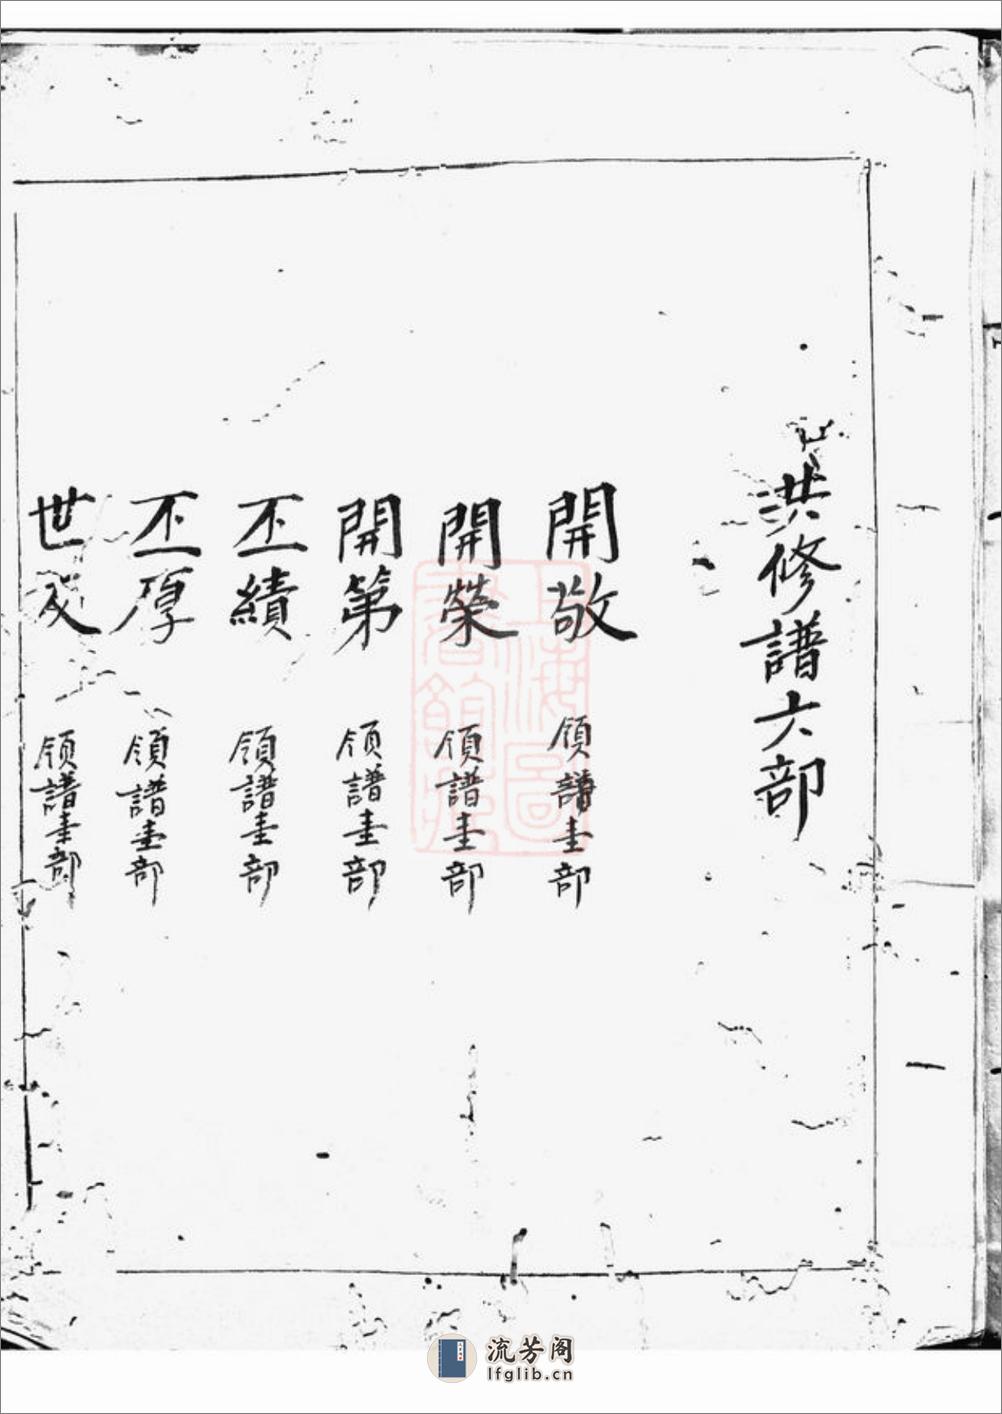 洪修譜六部
開敬 領譜壹部
開榮 領譜壹部
開第 領譜壹部
丕績 領譜壹部
丕厚 領譜壹部
世 領譜壹部
上海圖書館藏
流芳阁
lfglib.cn